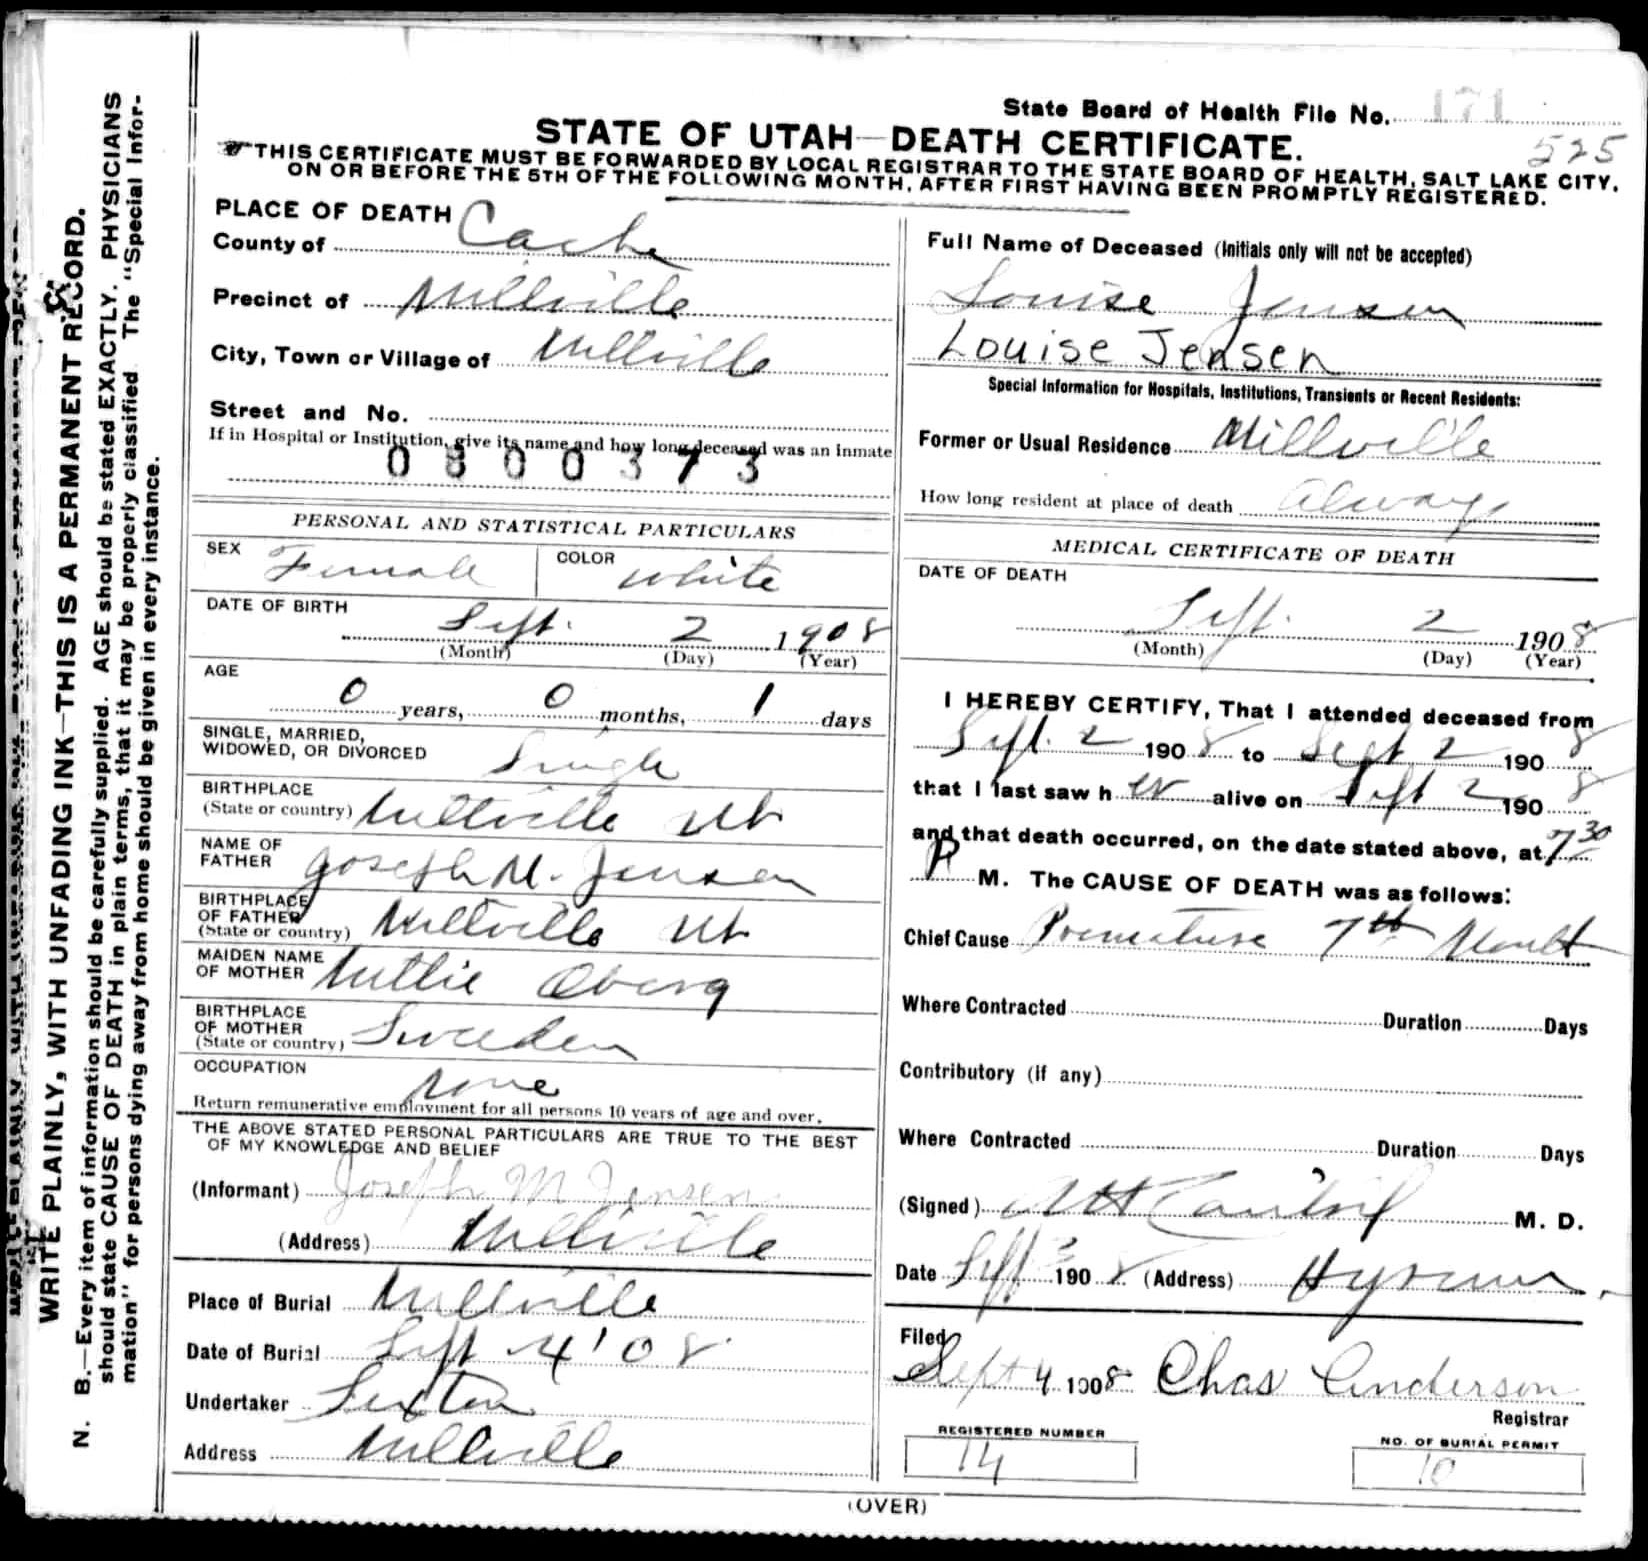 State Board of Health File No. 171
525
STATE OF UTAH—DEATH CERTIFICATE.
THIS CERTIFICATE MUST BE FORWARDED BY LOCAL REGISTRAR TO THE STATE BOARD OF HEALTH, SALT LAKE CITY,
ON OR BEFORE THE 5TH OF THE FOLLOWING MONTH, AFTER FIRST HAVING BEEN PROMPTLY REGISTERED.
WRITE PLAINLY, WITH UNFADING INK—THIS IS A PERMANENT RECORD.
N. B.—Every item of information should be carefully supplied. AGE should be stated EXACTLY. PHYSICIANS
should state CAUSE OF DEATH in plain terms, that it may be properly classified. The "Special Infor-
mation" for persons dying away from home should be given in every instance.
PLACE OF DEATH
County of Cache
Precinct of Millville
City, Town or Village of Millville
Street and No.
If in Hospital or Institution, give its name and how long deceased was an inmate
0800373
PERSONAL AND STATISTICAL PARTICULARS
SEX Female COLOR White
DATE OF BIRTH
Sept. 2 1908
(Month) (Day) (Year)
AGE
0 years, 0 months, 1 days
SINGLE, MARRIED,
WIDOWED, OR DIVORCED Single
BIRTHPLACE
(State or country) Millville Ut
NAME OF
FATHER Joseph M. Jensen
BIRTHPLACE
OF FATHER
(State or country) Millville Ut
MAIDEN NAME
OF MOTHER Oberg
BIRTHPLACE
OF MOTHER
(State or country) Sweden
OCCUPATION
None
Return remunerative employment for all persons 10 years of age and over.
THE ABOVE STATED PERSONAL PARTICULARS ARE TRUE TO THE BEST
OF MY KNOWLEDGE AND BELIEF
(Informant) Joseph M Jensen
(Address) Millville
Place of Burial Millville
Date of Burial Sept 4 '08
Undertaker Sexton
Address Millville
Full Name of Deceased (Initials only will not be accepted)
Louise Jensen
Louise Jensen
Special Information for Hospitals, Institutions, Transients or Recent Residents:
Former or Usual Residence Millville
How long resident at place of death always
MEDICAL CERTIFICATE OF DEATH
DATE OF DEATH
Sept. 2 1908
(Month) (Day) (Year)
I HEREBY CERTIFY, That I attended deceased from
Sept. 2 1908 to Sept 2 1908
that I last saw her alive on Sept 2 1908
and that death occurred, on the date stated above, at 7 30
P M. The CAUSE OF DEATH was as follows:
Chief Cause Premature 7th Month
Where Contracted Duration Days
Contributory (if any)
Where Contracted Duration Days
(Signed) M. D.
Date Sept 3 1908 (Address) Hyrum.
Filed
Sept 4 1908 Chas Anderson
Registrar
REGISTERED NUMBER
14
NO. OF BURIAL PERMIT
10
(OVER)